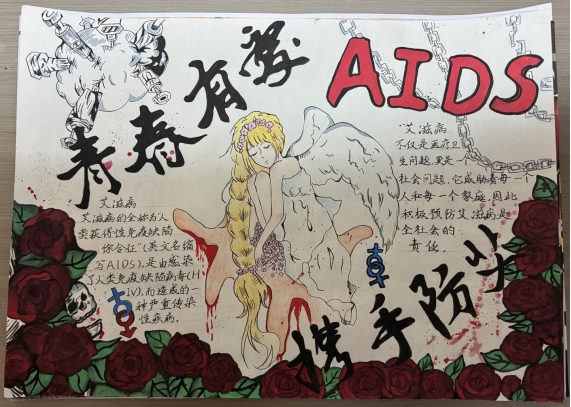 青春有爱
AIDS
携手防艾
艾滋病
艾滋病的全称为人
类获得性免疫缺陷
综合征"(英文名缩
写AIDS),是由感染
了人类免疫缺陷病毒(H
IV),而造成的一
种严重传染
性疾病.
艾滋病
不仅是医疗卫
生问题,更是一个
社会问题,它威胁着每一个
人和每一个家庭,因此
积极预防艾滋病是
全社会的
责任.